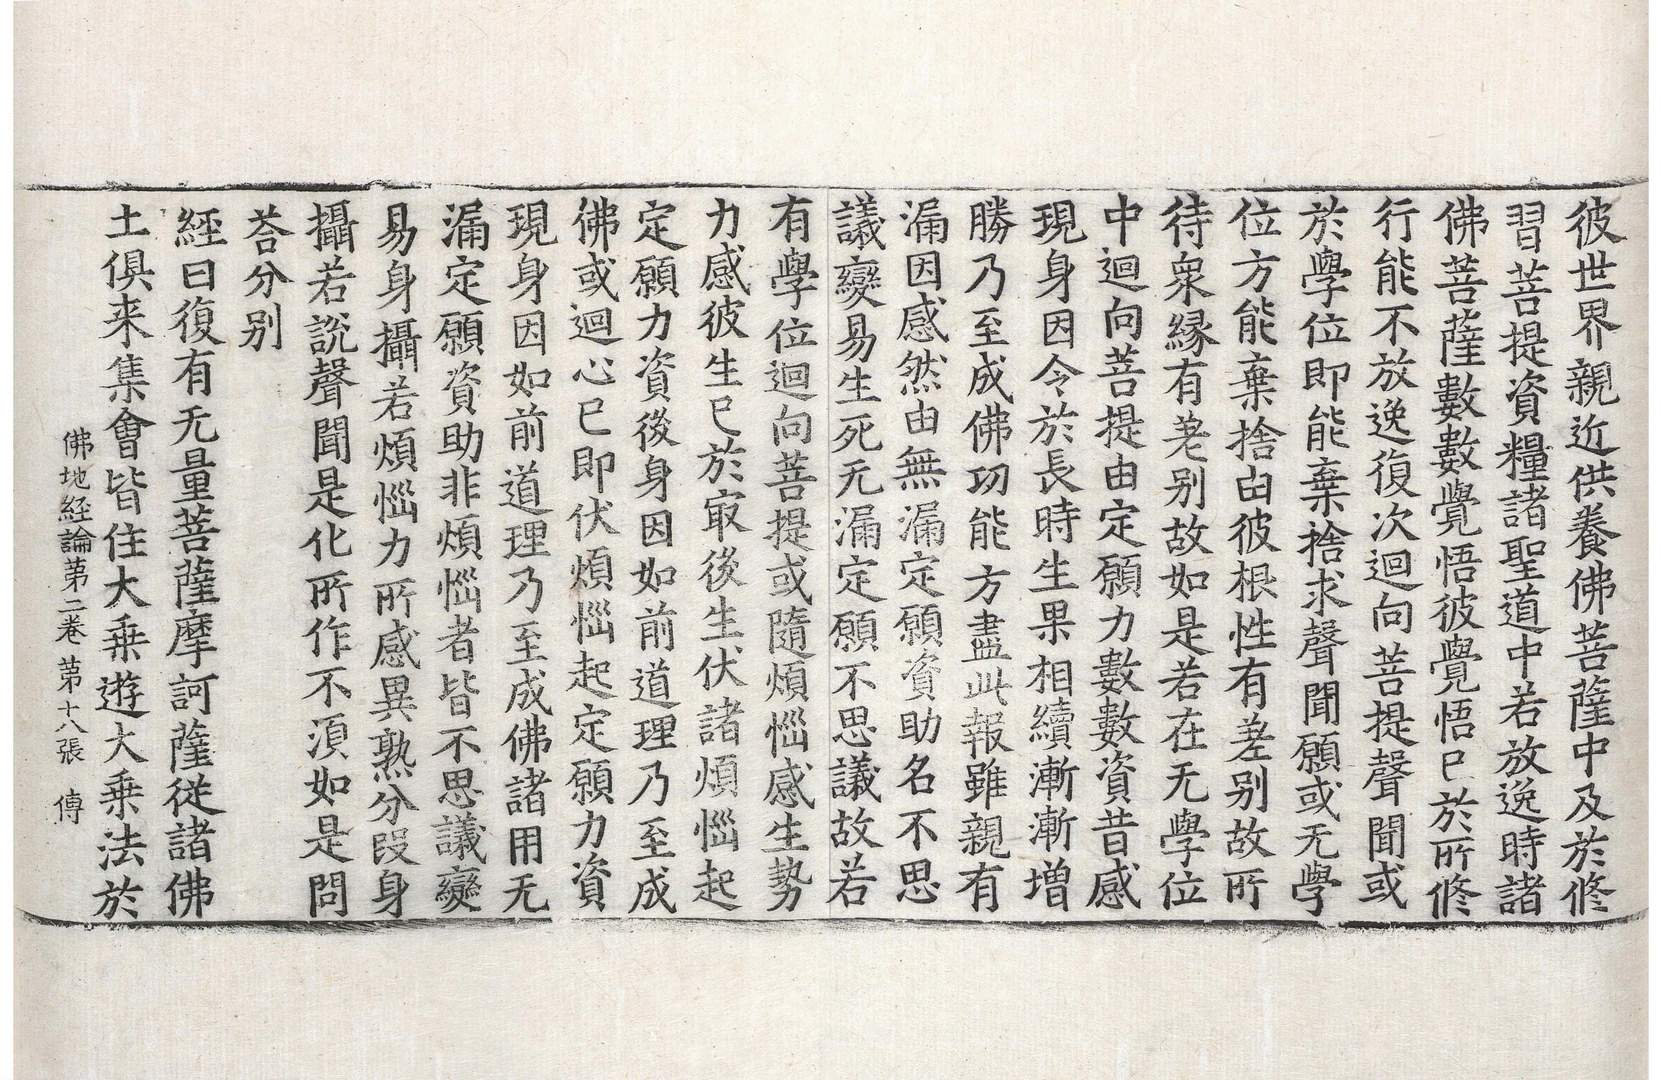 彼世界親近供養佛菩薩中及於修
習菩提資糧諸聖道中若放逸時諸
佛菩薩數數覺悟彼覺悟已於所修
行能不放逸復次迴向菩提聲聞或
於學位即能棄捨求聲聞願或无學
位方能棄捨由彼根性有差別故所
待衆縁有差别故如是若在无學位
中迴向菩提由定願力數數資昔感
現身因令於長時生果相續漸漸增
勝乃至成佛功能方盡此報雖親有
漏因感然由無漏定願資助名不思
議變易生死无漏定願不思議故若
有學位迴向菩提或隨煩惱感生勢
力感彼生已於冣後生伏諸煩惱起
定願力資後身因如前道理乃至成
佛或迴心已即伏煩惱起定願力資
現身因如前道理乃至成佛諸用无
漏定願資助非煩惱者皆不思議變
易身攝若煩惱力所感異熟分段身
攝若說聲聞是化所作不湏如是問
荅分别
經曰復有无量菩薩摩訶薩從諸佛
土俱来集會皆住大乗遊大乗法於
佛地経論第二卷 第十八張 傳